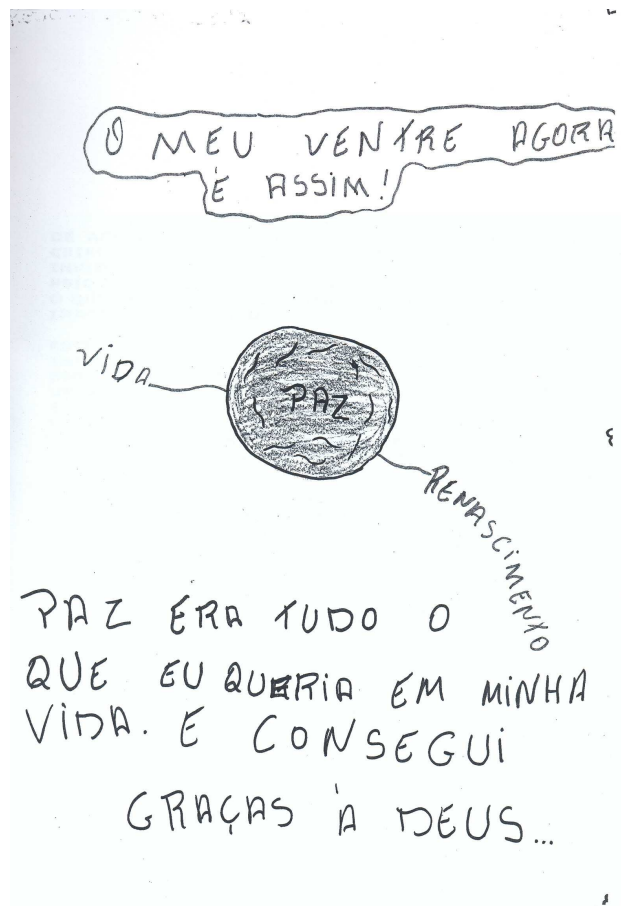 O MEU VENTRE AGORA
É ASSIM!
VIDA
PAZ
RENASCIMENTO
PAZ ERA TUDO O
QUE EU QUERIA EM MINHA
VIDA. E CONSEGUI
GRAÇAS À DEUS...